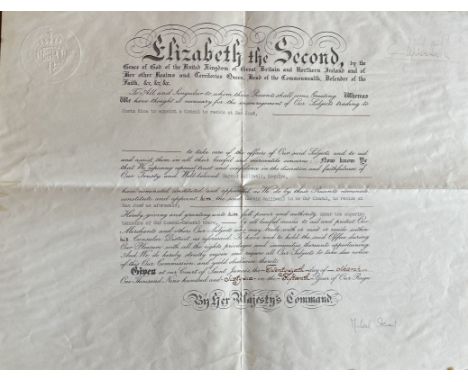 Elizabeth the Second, by the
Grace of God of the United Kingdom of Great Britain and Northern Ireland and of
Her other Realms and Territories Queen, Head of the Commonwealth, Defender of the
Faith, &c; &c; &c.
To All and Singular to whom these Presents shall come, Greeting. Whereas
We have thought it necessary for the encouragement of Our Subjects trading to
Costa Rica to appoint a Consul to reside at San José,
to take care of the affairs of Our said Subjects and to aid
and assist them in all their lawful and mercantile concerns; Now know Ye
that We, reposing especial trust and confidence in the discretion and faithfulness of
Our Trusty and Well-beloved Esquire,
have nominated, constituted and appointed, as We do by these Presents nominate,
constitute and appoint him, the said to be Our Consul, to reside at
San José as aforesaid,
Hereby giving and granting unto him full power and authority,
by all lawful means to aid and protect Our
Merchants and others Our Subjects who may trade with or reside within
his Consular District as aforesaid. To have and to hold the said Office during
Our Pleasure with all the rights, privileges and immunities thereunto appertaining.
And We do hereby strictly enjoin and require all Our Subjects to take due notice
of this Our Commission, and yield obedience thereto.
Given at our Court of Saint James's the day of
One thousand Nine hundred and in the Year of Our Reign
By Her Majesty's Command,
Michael Stewart